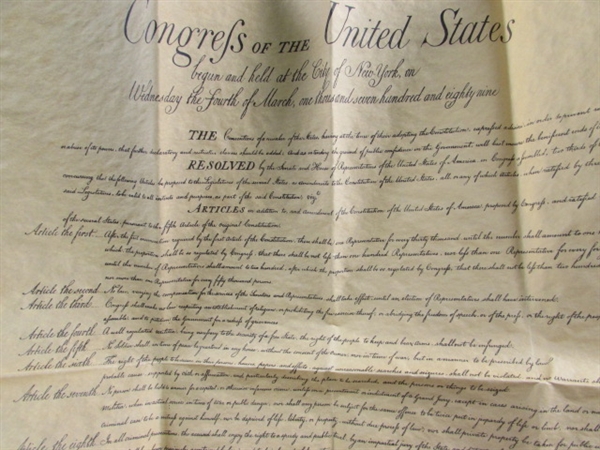 Congreſs OF THE United States
begun and held at the City of New-York, on
Wednesday the fourth of March, one thousand seven hundred and eighty nine
THE Conventions of a number of the States, having at the time of their adopting the Constitution, expressed a desire, in order to prevent
powers, that further declaratory and restrictive clauses should be added: And as extending the ground of public confidence in the Government, will best ensure the
RESOLVED by the Senate and House of Representatives of the United States of America, in Congreſs aſsembled, two thirds of
concurring, that the following Articles be proposed to the Legislatures of the several States, as amendments to the Constitution of the United States, all, or any of which Articles, when ratified by three
said Legislatures, to be valid to all intents and purposes, as part of the said Constitution; viz.
ARTICLES in addition to, and amendment of the Constitution of the United States of America, proposed by Congreſs, and ratified
of the several States, pursuant to the fifth Article of the original Constitution.
Article the first... After the first enumeration required by the first Article of the Constitution, there shall be one Representative for every thirty thousand, until the number shall amount to one
which, the proportion shall be so regulated by Congreſs, that there shall be not leſs than one hundred Representatives, nor leſs than one Representative for every
until the number of Representatives shall amount to two hundred, after which the proportion shall be so regulated by Congreſs, that there shall not be leſs than two hundred
nor more than one Representative for every fifty thousand persons.
Article the second... No law, varying the compensation for the services of the Senators and Representatives, shall take effect, until an election of Representatives shall have intervened.
Article the third... Congreſs shall make no law respecting an establishment of religion, or prohibiting the free exercise thereof; or abridging the freedom of speech, or of the preſs, or the right of the
aſsemble, and to petition the Government for a redreſs of grievances.
Article the fourth.. A well regulated militia, being neceſsary to the security of a free State, the right of the people to keep and bear arms, shall not be infringed.
Article the fifth... No Soldier shall, in time of peace be quartered in any house, without the consent of the owner, nor in time of war, but in a manner to be prescribed by law.
Article the sixth... The right of the people to be secure in their persons, houses, papers, and effects, against unreasonable searches and seizures, shall not be violated, and no warrants
probable cause, supported by oath or affirmation, and particularly describing the place to be searched, and the persons or things to be seized.
Article the seventh.. No person shall be held to answer for a capital, or otherwise infamous crime, unleſs on a presentment or indictment of a Grand Jury, except in cases arising in the land or
Militia, when in actual service in time of War or public danger; nor shall any person be subject for the same offence to be twice put in jeopardy of life or limb;
criminal case to be a witneſs against himself, nor be deprived of life, liberty, or property, without due proceſs of law; nor shall private property be taken for public
Article the eighth.. In all criminal prosecutions, the accused shall enjoy the right to a speedy and public trial, by an impartial jury of the State and